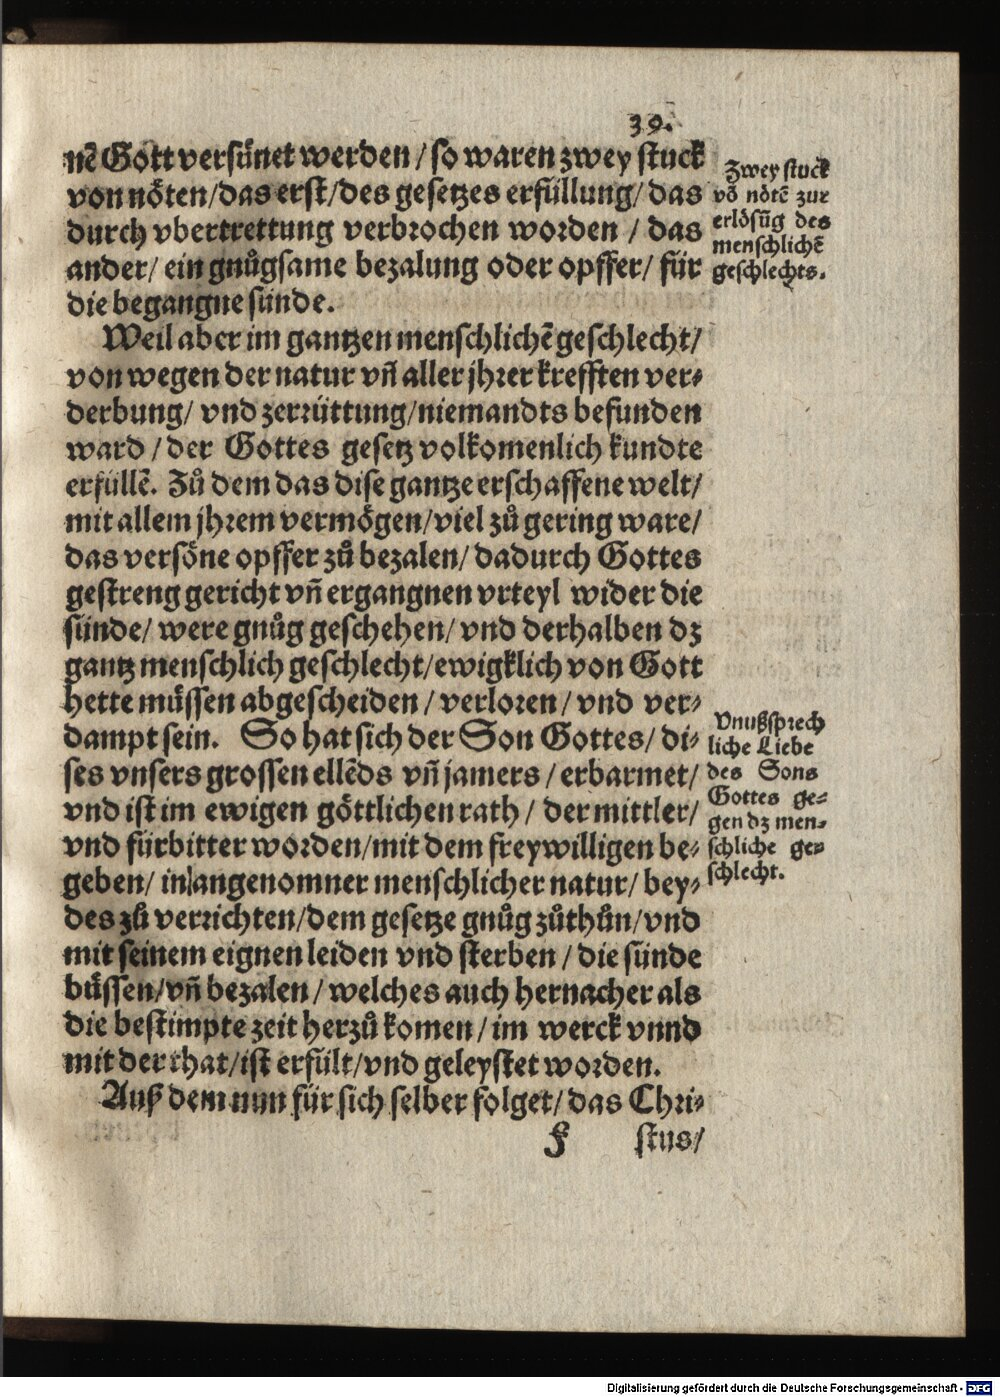 39.
nē Gott versünet werden / so waren zwey stuck
von nöten/das erst/des gesetzes erfüllung/ das
durch vbertrettung verbrochen worden / das
ander/ ein gnůgsame bezalung oder opffer/ für
die begangne sünde.
Zwey stuck
vō nötē zur
erlösūg des
menschlichē
geschlechts.
Weil aber im gantzen menschlichē geschlecht/
von wegen der natur vñ aller jhrer krefften ver-
derbung/ vnd zerrüttung/niemandts befunden
ward / der Gottes gesetz volkomenlich kundte
erfüllē. Zů dem das dise gantze erschaffene welt/
mit allem jhrem vermögen/viel zů gering ware/
das versöne opffer zů bezalen/ dadurch Gottes
gestreng gericht vñ ergangnen vrteyl wider die
sünde/ were gnůg geschehen/ vnd derhalben dz
gantz menschlich geschlecht/ewigklich von Gott
hette müssen abgescheiden / verloren / vnd ver-
dampt sein. So hat sich der Son Gottes/ di-
ses vnsers grossen ellēds vñ jamers / erbarmet/
vnd ist im ewigen göttlichen rath / der mittler/
vnd fürbitter worden/mit dem freywilligen be-
geben/ in angenomner menschlicher natur/ bey-
des zů verrichten/dem gesetze gnůg zůthůn/vnd
mit seinem eignen leiden vnd sterben / die sünde
büssen/vñ bezalen / welches auch hernacher als
die bestimpte zeit herzů komen / im werck vnnd
mit der that/ist erfült/vnd geleystet worden.
Vnußsprech
liche Liebe
des Sons
Gottes ge-
gen dz men-
schliche ge-
schlecht.
Auß dem nun für sich selber folget/das Chri-
F stus/
Digitalisierung gefördert durch die Deutsche Forschungsgemeinschaft - DFG